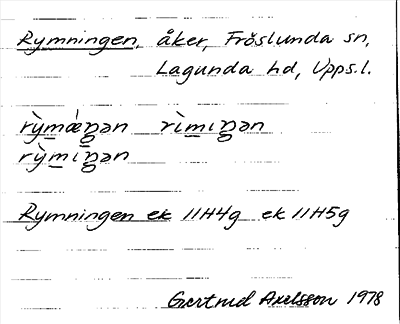 Rymningen, åker, Fröslunda sn,
Lagunda hd, Upps.l.
rỳmǽŋən rìmıŋən
rỳmíŋən
Rymningen ek 11H4g ek 11H5g
Gertrud Axelsson 1978